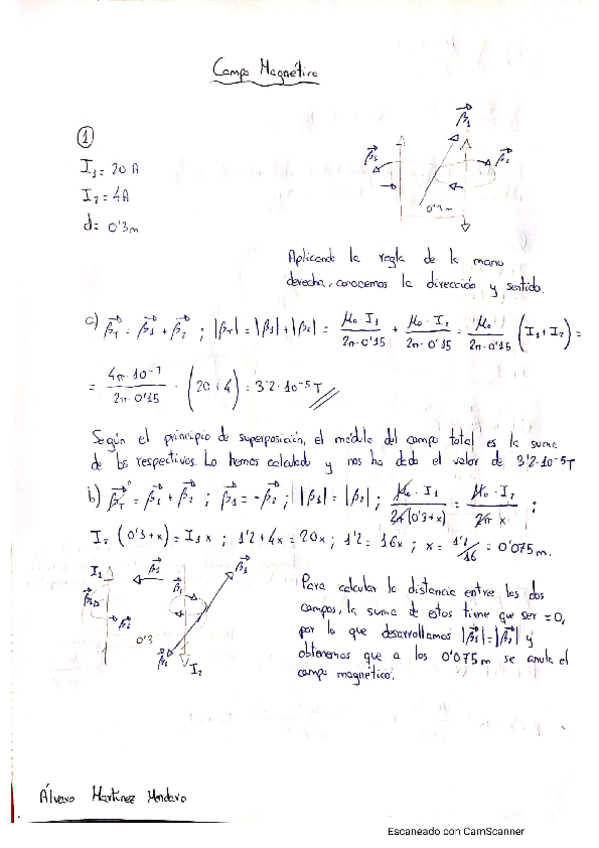 Campo Magnético
①
I₁ = 20 A
I₂ = 4A
d = 0'3m
B₁
B₂
0'3m
Aplicando la regla de la mano
derecha, conocemos la dirección y sentido.
a) B_T = B₁ + B₂ ; |B_T| = |B₁| + |B₂| = μ₀ · I₁ / 2π · 0'15 + μ₀ · I₂ / 2π · 0'15 = μ₀ / 2π · 0'15 (I₁ + I₂) =
= 4π · 10⁻⁷ / 2π · 0'15 · (20 + 4) = 3'2 · 10⁻⁵ T
Según el principio de superposición, el módulo del campo total es la suma
de los respectivos. Lo hemos calculado y nos ha dado el valor de 3'2 · 10⁻⁵ T
b) B_T = B₁ + B₂ ; B₁ = -B₂ ; |B₁| = |B₂| ; μ₀ · I₁ / 2π (0'3+x) = μ₀ · I₂ / 2π x ;
I₂ (0'3+x) = I₁ x ; 1'2 + 4x = 20x ; 1'2 = 16x ; x = 1'2/16 = 0'075 m.
I₁
B₁
B₁
B₂
0'3
I₂
Para calcular la distancia entre los dos
campos, la suma de estos tiene que ser = 0,
por lo que desarrollamos |B₁| = |B₂| y
obtenemos que a los 0'075 m se anula el
campo magnético.
Álvaro Martínez
Escaneado con CamScanner